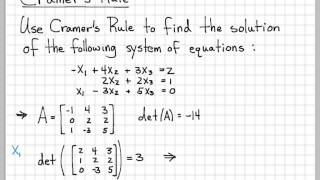 Cramer's Rule
Use Cramer's Rule to find the solution
of the following system of equations :
-X₁ + 4X₂ + 3X₃ = 2
2X₂ + 2X₃ = 1
X₁ - 3X₂ + 5X₃ = 0
⇒ A = [-1 4 3 det(A) = -14
0 2 2
1 -3 5]
X₁
det ([2 4 3 = 3 ⇒
1 2 2
0 -3 5])